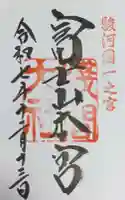 駿河國一之宮
富士山本宮
浅間大社
令和七年十一月十三日